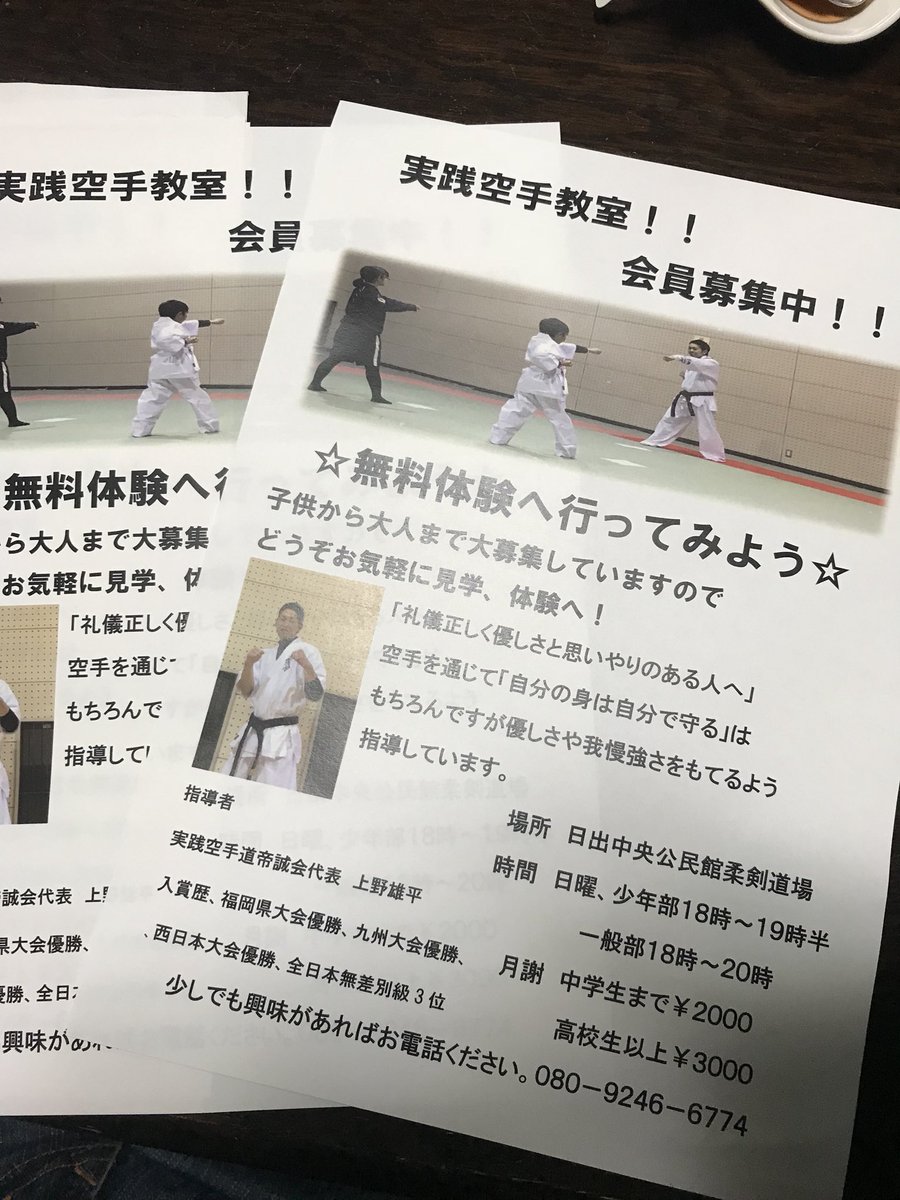 実践空手教室！！
会員募集中！！
☆無料体験へ行ってみよう☆
子供から大人まで大募集していますので
どうぞお気軽に見学、体験へ！
「礼儀正しく優しさと思いやりのある人へ」
空手を通じて「自分の身は自分で守る」は
もちろんですが優しさや我慢強さをもてるよう
指導しています。
指導者
実践空手道帝誠会代表　上野雄平
入賞歴、福岡県大会優勝、九州大会優勝、
西日本大会優勝、全日本無差別級３位
場所　日出中央公民館柔剣道場
時間　日曜、少年部18時～19時半
一般部18時～20時
月謝　中学生まで￥2000
高校生以上￥3000
少しでも興味があればお電話ください。080－9246－6774
実践空手教室！！
会員
無料体験へ
ら大人まで大募集
お気軽に見学、
「礼儀正しく
空手を通じ
もちろんで
指導して
誠会代表　上
県大会優勝、
優勝、全日
興味があ